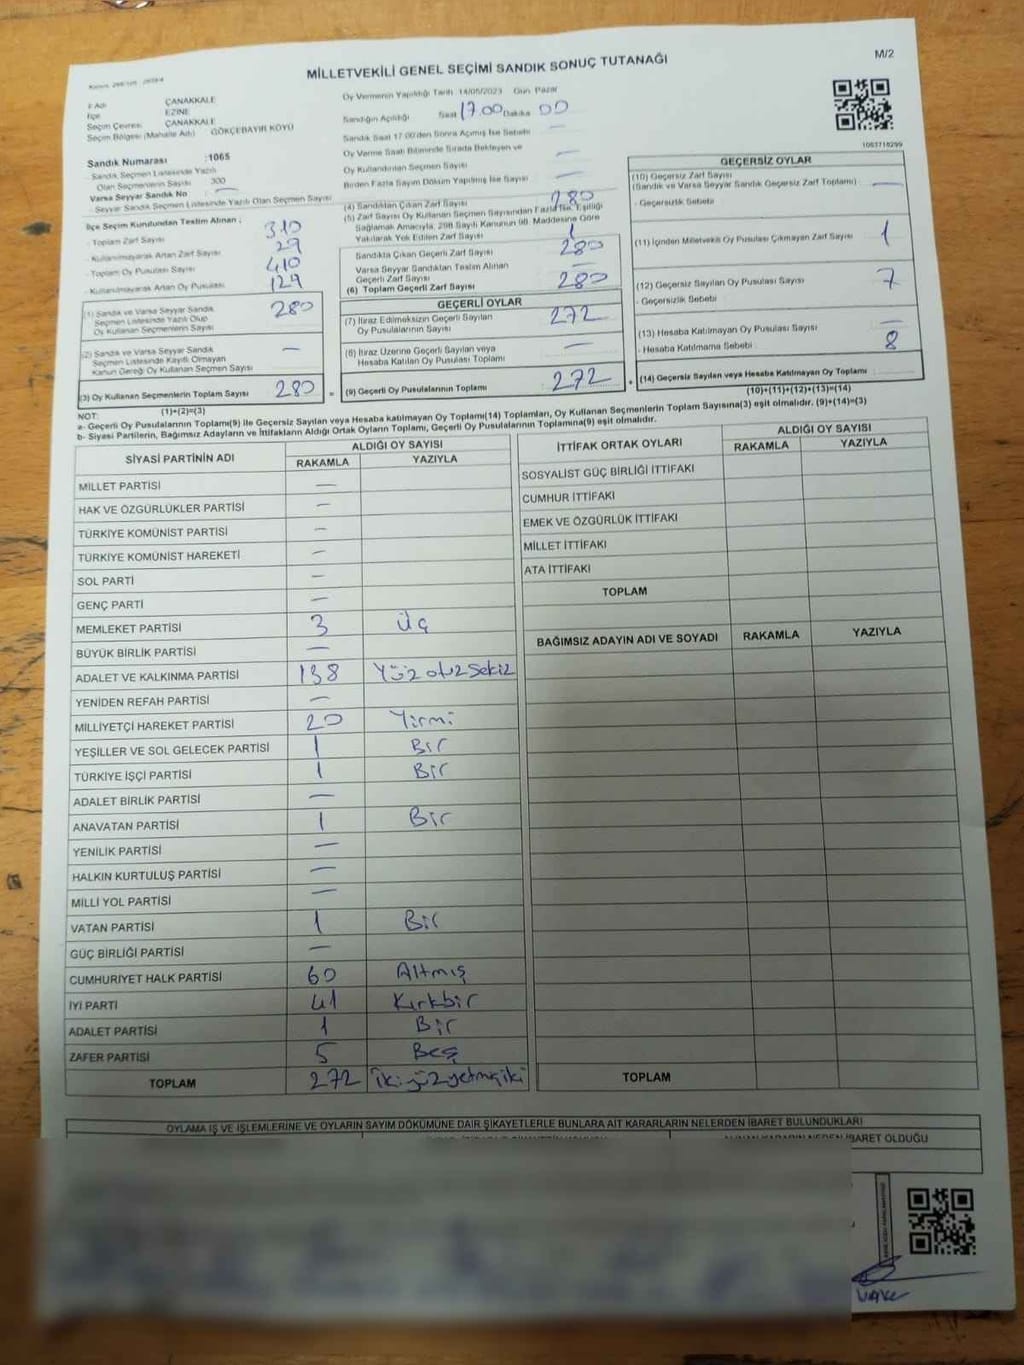 MİLLETVEKİLİ GENEL SEÇİMİ SANDIK SONUÇ TUTANAĞI
M/2
İl Adı ÇANAKKALE
İlçe EZİNE
Seçim Çevresi ÇANAKKALE
Seçim Bölgesi (Mahalle Adı) GÖKÇEBAYIR KÖYÜ
Sandık Numarası :1065
Sandık Seçmen Listesinde Yazılı
Olan Seçmenlerin Sayısı 300
Varsa Seyyar Sandık No —
- Seyyar Sandık Seçmen Listesinde Yazılı Olan Seçmen Sayısı
İlçe Seçim Kurulundan Teslim Alınan ;
- Toplam Zarf Sayısı 310
- Kullanılmayarak Artan Zarf Sayısı 29
- Toplam Oy Pusulası Sayısı 410
- Kullanılmayarak Artan Oy Pusulası 129
(1) Sandık ve Varsa Seyyar Sandık
Seçmen Listesinde Yazılı Olup
Oy Kullanan Seçmenlerin Sayısı 280
(2) Sandık ve Varsa Seyyar Sandık
Seçmen Listesinde Kayıtlı Olmayan
Kanun Gereği Oy Kullanan Seçmen Sayısı —
(3) Oy Kullanan Seçmenlerin Toplam Sayısı 280
(1)+(2)=(3)
Oy Vermenin Yapıldığı Tarih 14/05/2023 Gün Pazar
Sandığın Açıldığı Saat 17.00 Dakika 00
Sandık Saat 17:00'den Sonra Açılmış İse Sebebi —
Oy Verme Saati Bitiminde Sırada Bekleyen ve
Oy Kullandırılan Seçmen Sayısı —
Birden Fazla Sayım Döküm Yapılmış İse Sayısı —
(4) Sandıktan Çıkan Zarf Sayısı 280
(5) Zarf Sayısı Oy Kullanan Seçmen Sayısından Fazla İse, Eşitliği
Sağlamak Amacıyla, 298 Sayılı Kanunun 98. Maddesine Göre
Yakılarak Yok Edilen Zarf Sayısı 1
Sandıkta Çıkan Geçerli Zarf Sayısı 280
Varsa Seyyar Sandıktan Teslim Alınan
Geçerli Zarf Sayısı —
(6) Toplam Geçerli Zarf Sayısı 280
GEÇERLİ OYLAR
(7) İtiraz Edilmeksizin Geçerli Sayılan
Oy Pusulalarının Sayısı 272
(8) İtiraz Üzerine Geçerli Sayılan veya
Hesaba Katılan Oy Pusulası Toplamı —
= (9) Geçerli Oy Pusulalarının Toplamı 272
1063718299
GEÇERSİZ OYLAR
(10) Geçersiz Zarf Sayısı
(Sandık ve Varsa Seyyar Sandık Geçersiz Zarf Toplamı) —
- Geçersizlik Sebebi
(11) İçinden Milletvekili Oy Pusulası Çıkmayan Zarf Sayısı 1
(12) Geçersiz Sayılan Oy Pusulası Sayısı 7
- Geçersizlik Sebebi
(13) Hesaba Katılmayan Oy Pusulası Sayısı —
- Hesaba Katılmama Sebebi 8
+ (14) Geçersiz Sayılan veya Hesaba Katılmayan Oy Toplamı
(10)+(11)+(12)+(13)=(14)
NOT:
a- Geçerli Oy Pusulalarının Toplamı(9) ile Geçersiz Sayılan veya Hesaba katılmayan Oy Toplamı(14) Toplamları, Oy Kullanan Seçmenlerin Toplam Sayısına(3) eşit olmalıdır. (9)+(14)=(3)
b- Siyasi Partilerin, Bağımsız Adayların ve İttifakların Aldığı Ortak Oyların Toplamı, Geçerli Oy Pusulalarının Toplamına(9) eşit olmalıdır.
SİYASİ PARTİNİN ADI ALDIĞI OY SAYISI
RAKAMLA YAZIYLA
MİLLET PARTİSİ —
HAK VE ÖZGÜRLÜKLER PARTİSİ —
TÜRKİYE KOMÜNİST PARTİSİ —
TÜRKİYE KOMÜNİST HAREKETİ —
SOL PARTİ —
GENÇ PARTİ —
MEMLEKET PARTİSİ 3 Üç
BÜYÜK BİRLİK PARTİSİ —
ADALET VE KALKINMA PARTİSİ 138 Yüz otuz sekiz
YENİDEN REFAH PARTİSİ —
MİLLİYETÇİ HAREKET PARTİSİ 20 Yirmi
YEŞİLLER VE SOL GELECEK PARTİSİ 1 Bir
TÜRKİYE İŞÇİ PARTİSİ 1 Bir
ADALET BİRLİK PARTİSİ —
ANAVATAN PARTİSİ 1 Bir
YENİLİK PARTİSİ —
HALKIN KURTULUŞ PARTİSİ —
MİLLİ YOL PARTİSİ —
VATAN PARTİSİ 1 Bir
GÜÇ BİRLİĞİ PARTİSİ —
CUMHURİYET HALK PARTİSİ 60 Altmış
İYİ PARTİ 41 Kırkbir
ADALET PARTİSİ 1 Bir
ZAFER PARTİSİ 5 Beş
TOPLAM 272 İkiyüzyetmişiki
İTTİFAK ORTAK OYLARI ALDIĞI OY SAYISI
RAKAMLA YAZIYLA
SOSYALİST GÜÇ BİRLİĞİ İTTİFAKI
CUMHUR İTTİFAKI
EMEK VE ÖZGÜRLÜK İTTİFAKI
MİLLET İTTİFAKI
ATA İTTİFAKI
TOPLAM
BAĞIMSIZ ADAYIN ADI VE SOYADI RAKAMLA YAZIYLA
TOPLAM
OYLAMA İŞ VE İŞLEMLERİNE VE OYLARIN SAYIM DÖKÜMÜNE DAİR ŞİKAYETLERLE BUNLARA AİT KARARLARIN NELERDEN İBARET BULUNDUKLARI
İBARET OLDUĞU